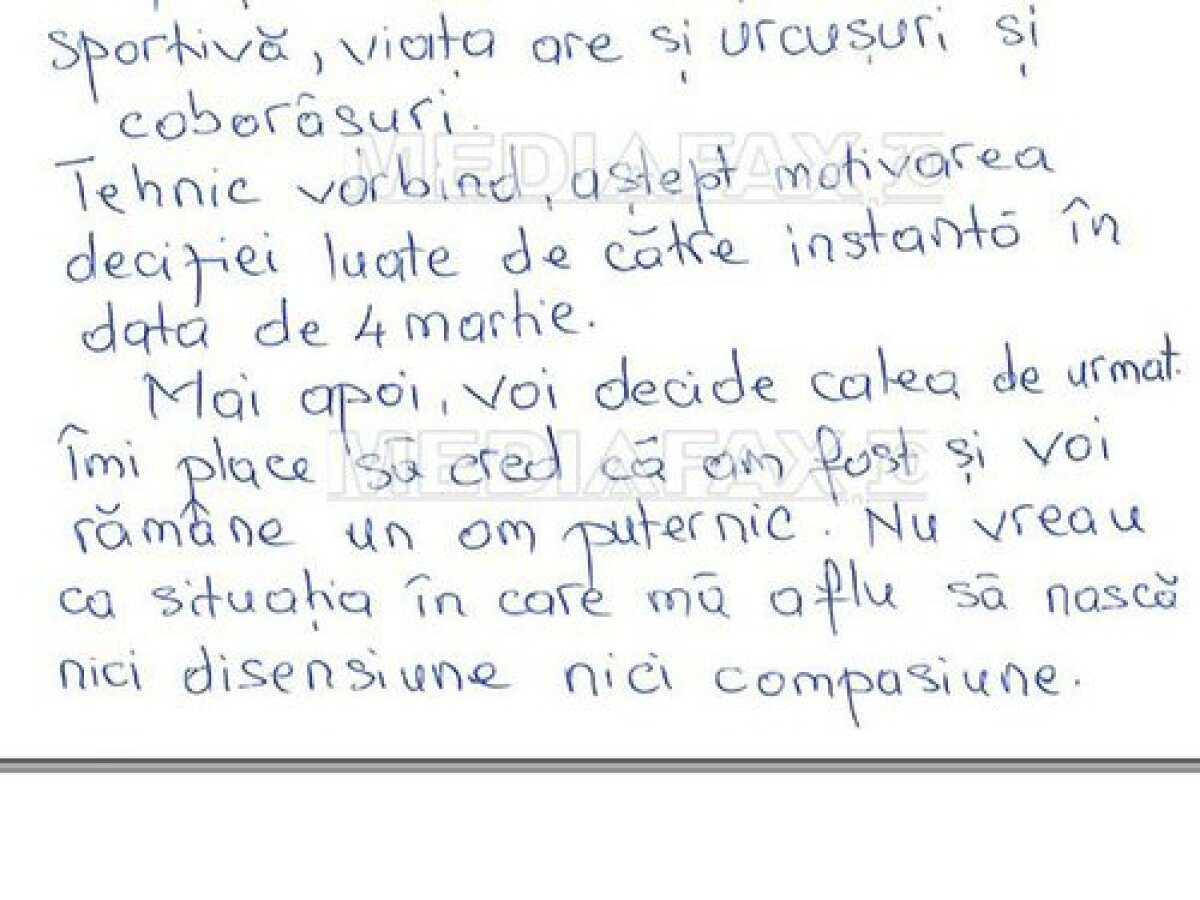 sportivă, viața are și urcușuri și
coborâsuri.
Tehnic vorbind, aștept motivarea
deciziei luate de către instantă în
data de 4 martie.
Mai apoi, voi decide calea de urmat.
Îmi place să cred că am fost și voi
rămâne un om puternic. Nu vreau
ca situația în care mă aflu să nască
nici disensiune nici compasiune.
MEDIAFAX
MEDIAFAX